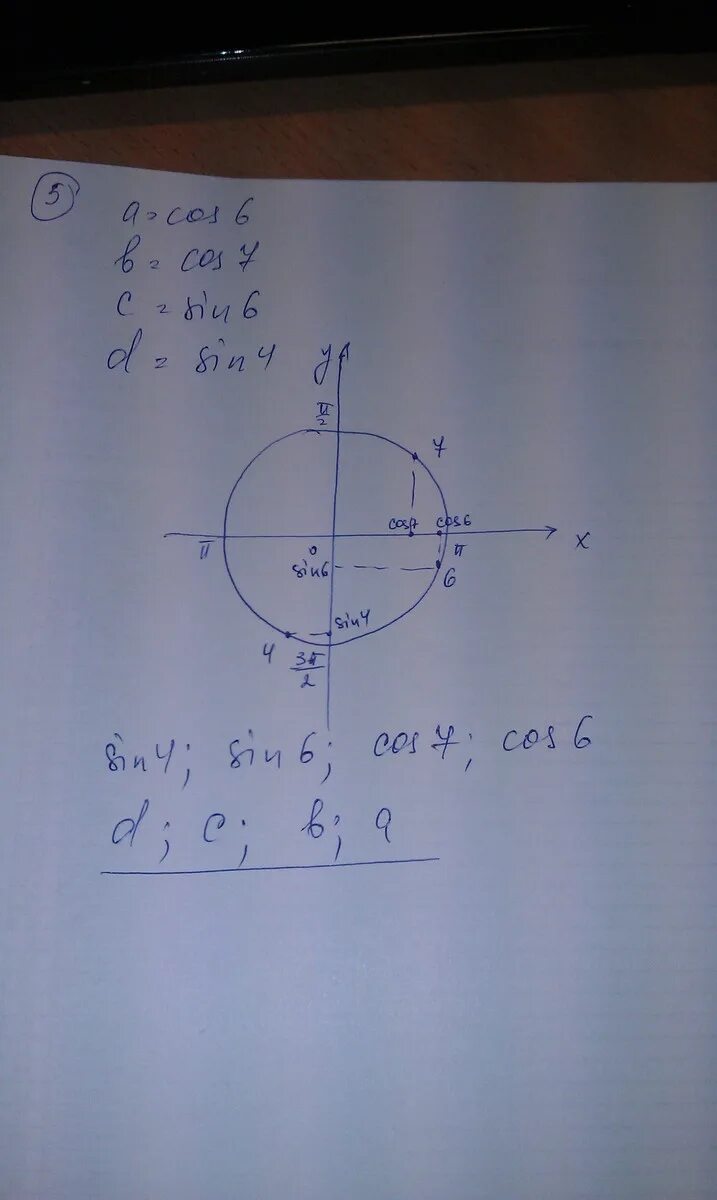 5
a = cos 6
b = cos 7
c = sin 6
d = sin 4
y
π/2
7
cos7 cos6
π 0 π x
sin6
6
sin4
4 3π/2
sin4; sin 6; cos 7; cos 6
d; c; b; a